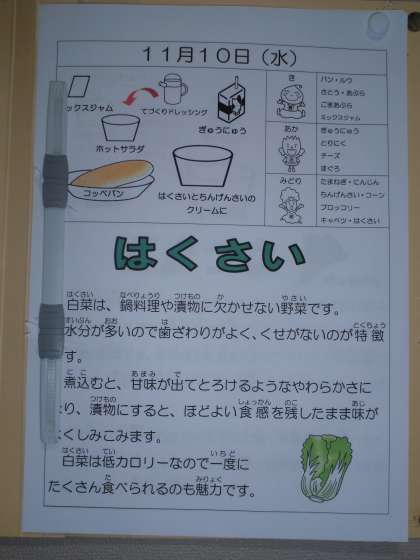 11月10日（水）
ックスジャム
てづくりドレッシング
ぎゅうにゅう
ホットサラダ
コッペパン
はくさいとちんげんさいの
クリームに
き
パン・ルウ
さとう・あぶら
ごまあぶら
ミックスジャム
あか
ぎゅうにゅう
とりにく
チーズ
まぐろ
みどり
たまねぎ・にんじん
ちんげんさい・コーン
ブロッコリー
キャベツ・はくさい
はくさい
はくさい なべりょうり つけもの か やさい
白菜は、鍋料理や漬物に欠かせない野菜です。
すいぶん おお は とくちょう
水分が多いので歯ざわりがよく、くせがないのが特徴
す。
にこ あまみ で
煮込むと、甘味が出てとろけるようなやわらかさに
つけもの しょっかん のこ あじ
り、漬物にすると、ほどよい食感を残したまま味が
くしみこみます。
はくさい てい いちど
白菜は低カロリーなので一度に
た みりょく
たくさん食べられるのも魅力です。